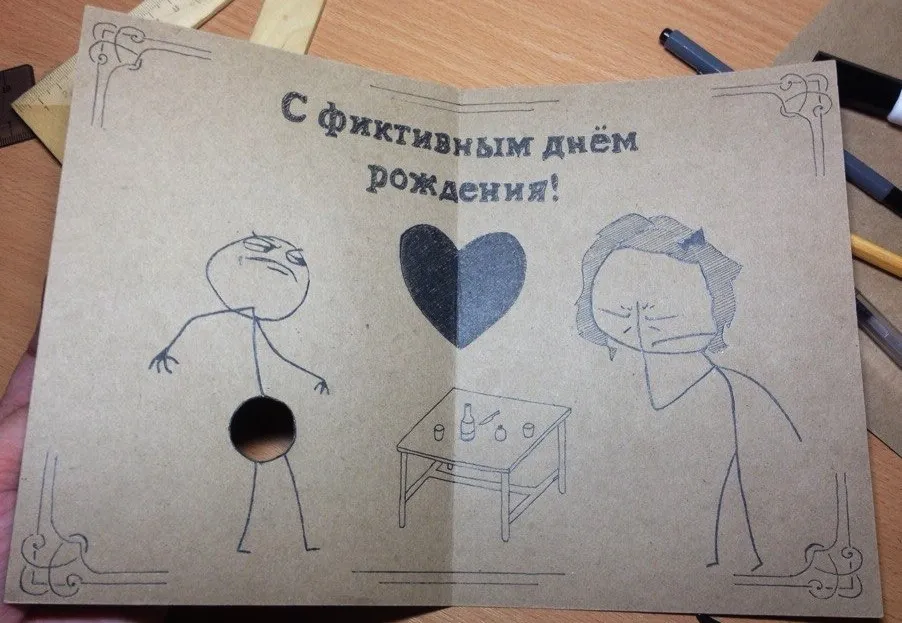 С фиктивным днём
рождения!